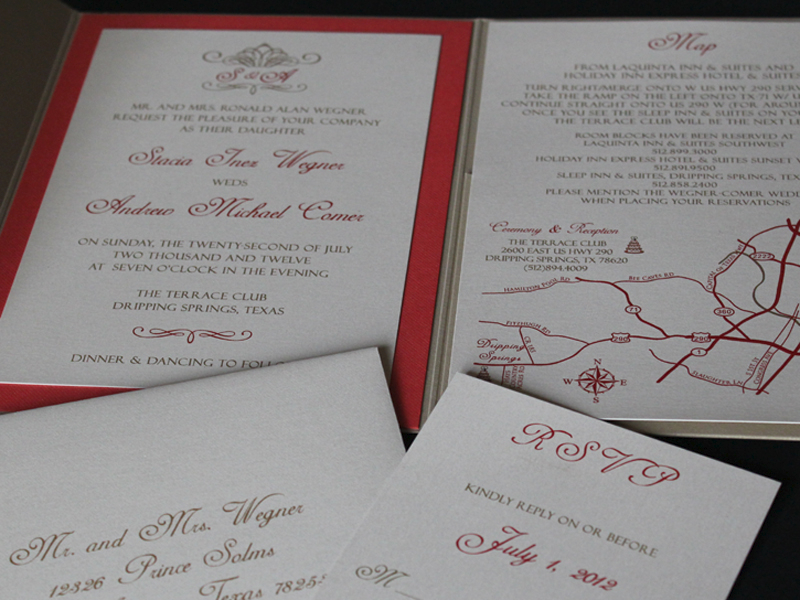 S & A
MR. AND MRS. RONALD ALAN WEGNER
REQUEST THE PLEASURE OF YOUR COMPANY
AS THEIR DAUGHTER
Stacia Inez Wegner
WEDS
Andrew Michael Comer
ON SUNDAY, THE TWENTY-SECOND OF JULY
TWO THOUSAND AND TWELVE
AT SEVEN O'CLOCK IN THE EVENING
THE TERRACE CLUB
DRIPPING SPRINGS, TEXAS
DINNER & DANCING TO
Map
FROM LAQUINTA INN & SUITES AND
HOLIDAY INN EXPRESS HOTEL & SUITES
TURN RIGHT/MERGE ONTO W US HWY 290
TAKE THE RAMP ON THE LEFT ONTO TX-71 W/
CONTINUE STRAIGHT ONTO US 290 W (FOR
ONCE YOU SEE THE SLEEP INN & SUITES ON
THE TERRACE CLUB WILL BE THE NEXT
ROOM BLOCKS HAVE BEEN RESERVED AT
LAQUINTA INN & SUITES SOUTHWEST
512.899.3000
HOLIDAY INN EXPRESS HOTEL & SUITES SUNSET
512.891.9500
SLEEP INN & SUITES, DRIPPING SPRINGS,
512.858.2400
PLEASE MENTION THE WEGNER-COMER
WHEN PLACING YOUR RESERVATIONS
Ceremony & Reception
THE TERRACE CLUB
2600 EAST US HWY 290
DRIPPING SPRINGS, TX 78620
(512)894.4009
HAMILTON POOL RD
BEE CAVES RD
2222
360
71
FITZHUGH RD
290
290
1
Dripping
Springs
SLAUGHTER LN
N
W E
S
Mr. and Mrs. Wegner
12326 Prince Solms
Texas
RSVP
KINDLY REPLY ON OR BEFORE
July 1, 2012
M